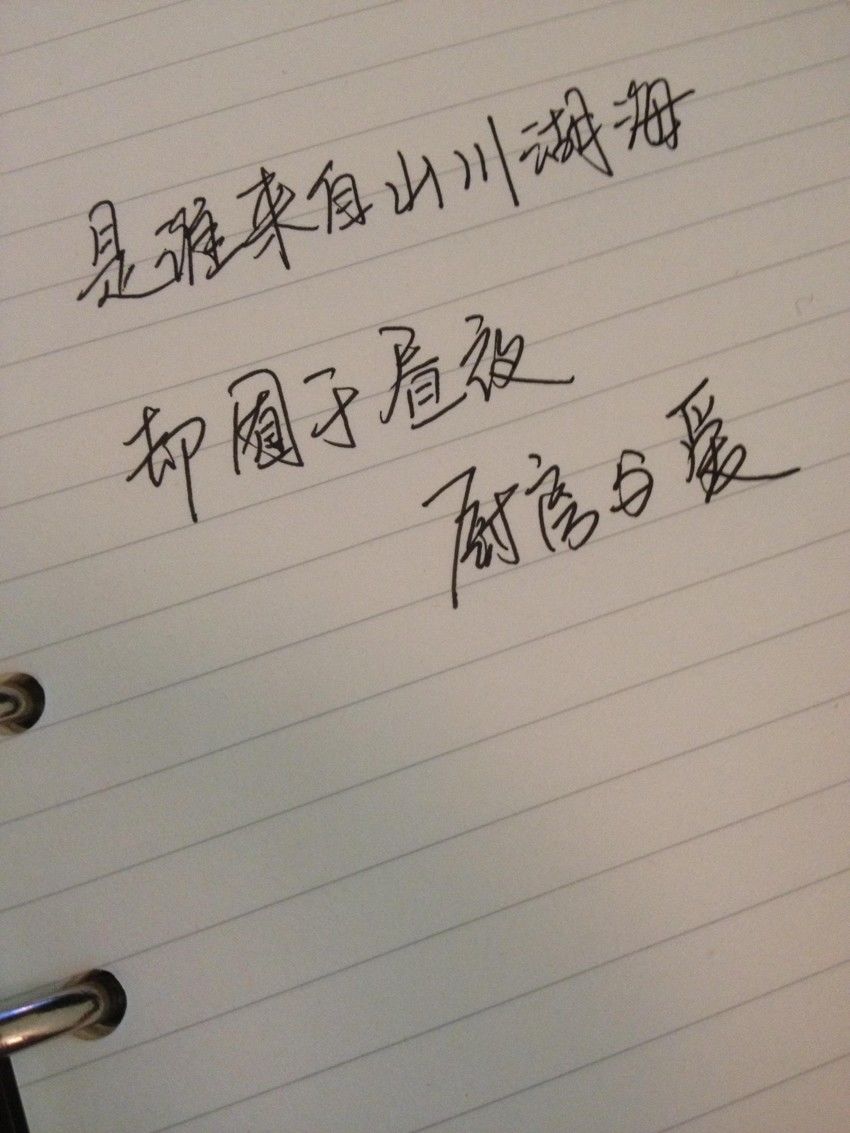 是谁来自山川湖海
却囿于昼夜
厨房与爱